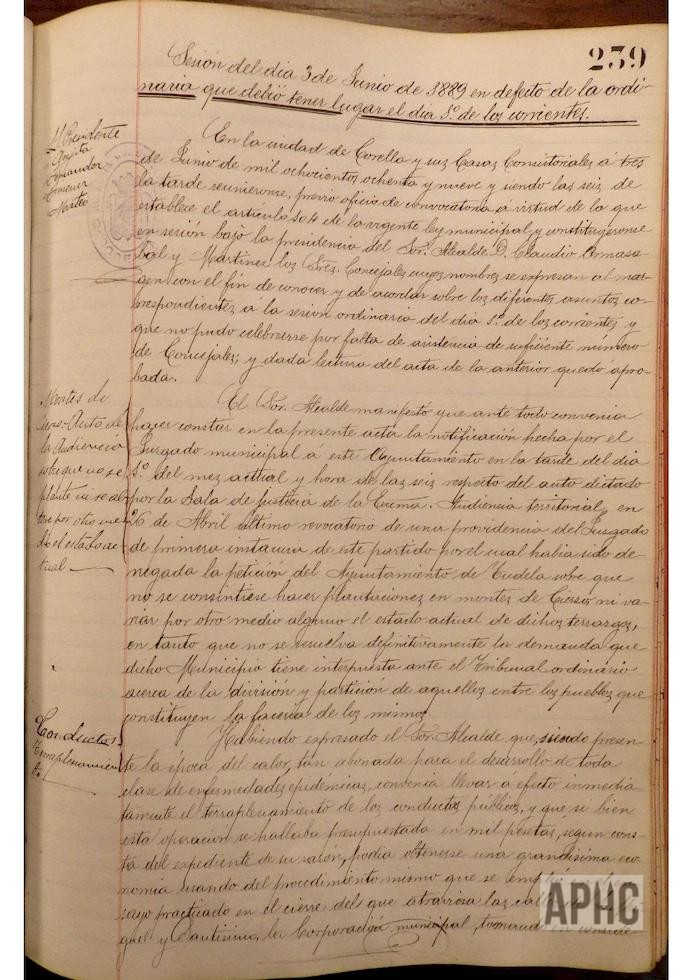 239
Sesión del dia 3 de Junio de 1889 en defecto de la ordi-
naria que debió tener lugar el dia 1º. de los corrientes.
Sr. Presidente
Jimenez
Mateo
En la ciudad de Corella y sus Casas Consistoriales á tres
de Junio de mil ochocientos ochenta y nueve y siendo las seis de
la tarde reunieronse, previo oficio de convocatoria á virtud de lo que
establece el artículo 104 de la vigente ley municipal y constituyeronse
en sesion bajo la presidencia del Sor. Alcalde D. Claudio
y Martinez los Sres. Concejales cuyos nombres se expresan al mar-
gen con el fin de conocer y de acordar sobre los diferentes asuntos co-
rrespondientes á la sesion ordinaria del dia 1º. de los corrientes y
que no pudo celebrarse por falta de asistencia de suficiente número
de Concejales; y dada lectura del acta de la anterior quedó apro-
bada.
Montes de
Cierzo - Auto de
la Audiencia
sobre que no se
plante ni se al-
tere por otro me-
dio el estado ac-
tual
El Sor. Alcalde manifestó que ante todo convenia
hacer constar en la presente acta la notificación hecha por el
Juzgado municipal a este Ayuntamiento en la tarde del dia
1º. del mes actual y hora de las seis respecto del auto dictado
por la Sala de justicia de la Excma. Audiencia territorial, en
26 de Abril ultimo revocatorio de una providencia del Juzgado
de primera instancia de este partido por el cual habia sido de-
negada la petición del Ayuntamiento de Tudela sobre que
no se consintiese hacer plantaciones en montes de Cierzo ni va-
riar por otro medio alguno el estado actual de dichos terrazgos,
en tanto que no se resuelva definitivamente la demanda que
dicho Municipio tiene interpuesta ante el Tribunal ordinario
acerca de la división y partición de aquellos entre los pueblos que
constituyen la faceria de los mismos.
Conductos
terraplenamien-
to.
Habiendo expresado el Sor. Alcalde que, siendo presen-
te la época del calor, tan abonada para el desarrollo de toda
clase de enfermedades epidémicas, convenia llevar á efecto inmedia-
tamente el terraplenamiento de los conductos públicos, y que si bien
esta operacion se hallaba presupuestada en mil pesetas, segun cons-
ta del expediente de su razón, podia obtenerse una grandisima eco-
nomia usando del procedimiento mismo que se
sayo practicado en el cierre del que atraviesa las calles
guel y Santisimo, la Corporación municipal, tomando en conside-
APHC